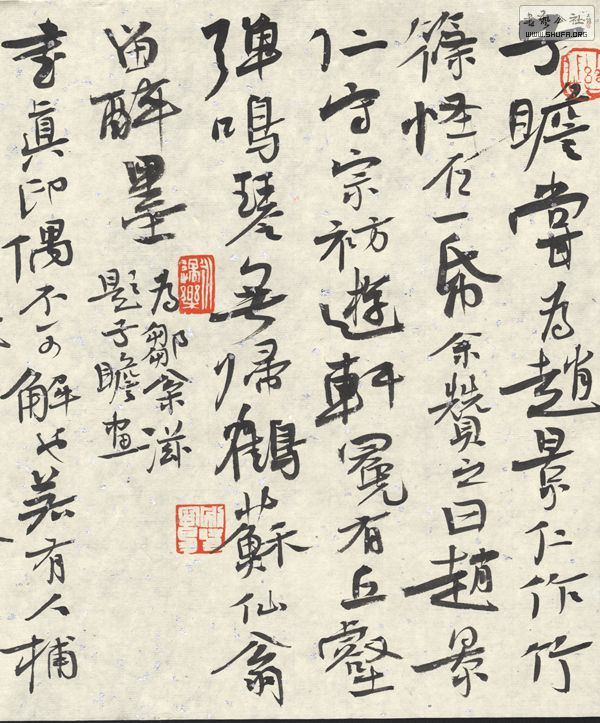 子瞻嘗为趙景仁作竹
篠怪石一帋余贊之曰趙景
仁守宗祊遊軒冕有丘壑
彈鳴琴無歸鶴蘇仙翁
留醉墨
為鄒枀滋
題子瞻畫
書真印偶不可解也若有人捕
WWW.SHUFA.ORG